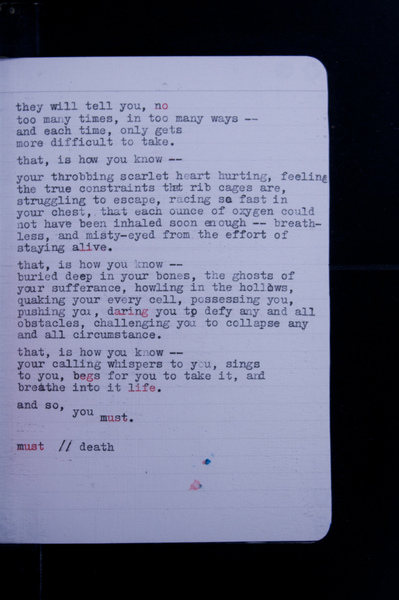 they will tell you, no
too many times, in too many ways --
and each time, only gets
more difficult to take.
that, is how you know --
your throbbing scarlet heart hurting, feeling
the true constraints that rib cages are,
struggling to escape, racing so fast in
your chest, that each ounce of oxygen could
not have been inhaled soon enough -- breath-
less, and misty-eyed from the effort of
staying alive.
that, is how you know --
buried deep in your bones, the ghosts of
your sufferance, howling in the hollows,
quaking your every cell, possessing you,
pushing you, daring you to defy any and all
obstacles, challenging you to collapse any
and all circumstance.
that, is how you know --
your calling whispers to you, sings
to you, begs for you to take it, and
breathe into it life.
and so, you must.
must // death